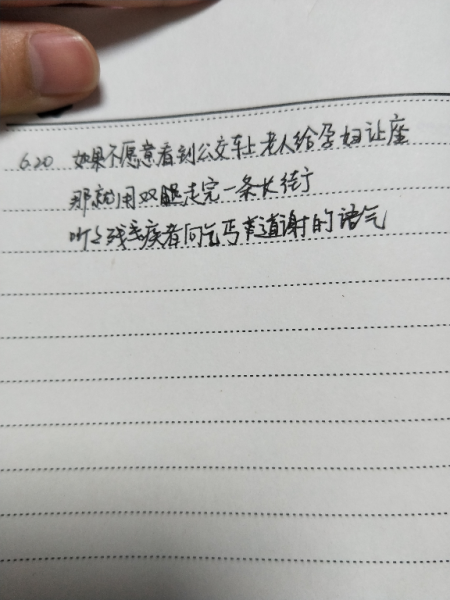 6.20 如果不愿意看到公交车上老人给孕妇让座
那就用双腿走完一条长街
听听残疾者向乞丐道谢的语气